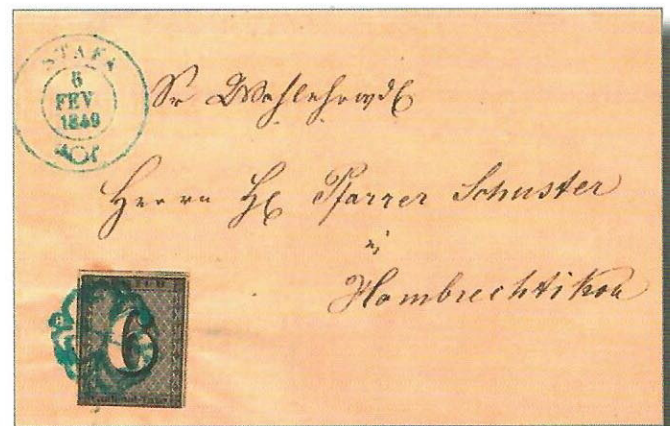 STAFA
6
FEV
1849
Sr Wohlehrwd
Herrn H. Pfarrer Schuster
in
Hombrechtikon
6